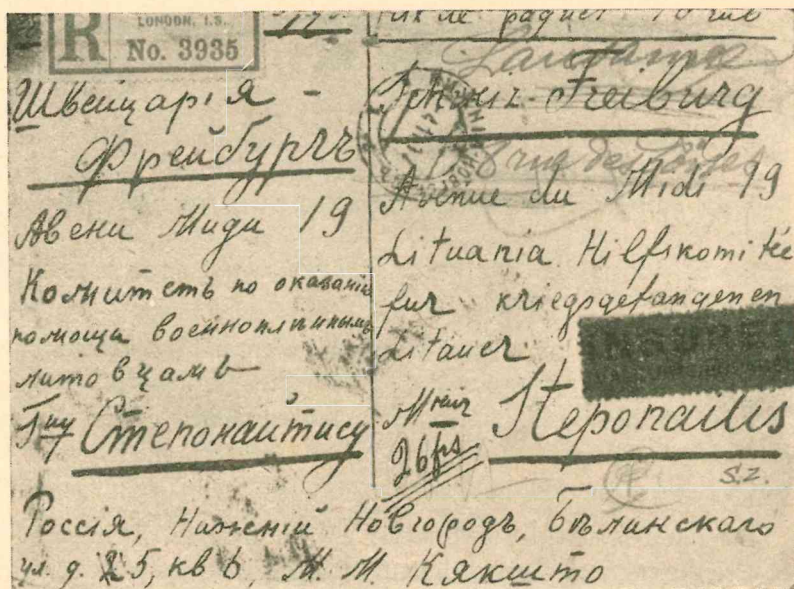 R
LONDON, I.S.
No. 3935
Швейцарія -
Фрейбургъ
Авени Миди 19
Комитетъ по оказанію
помощи военноплѣннымъ
литовцамъ
Гну Степонаитису
Lausanne
Schweiz-Freiburg
Avenue du Midi 19
Lituania Hilfskomitée
fur kriegsgefangenen
Litauer
INSURED
Steponaitis
26 fs
S.Z.
Россія, Нижній Новгородъ, Бѣлинскаго
ул. д. 25, кв 6, М. М. Кякшто